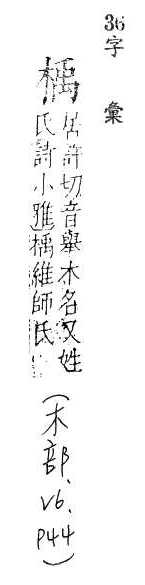 36字 彙
楀
居許切音舉木名又姓
氏詩小雅楀維師氏
(木部、V6、P44)